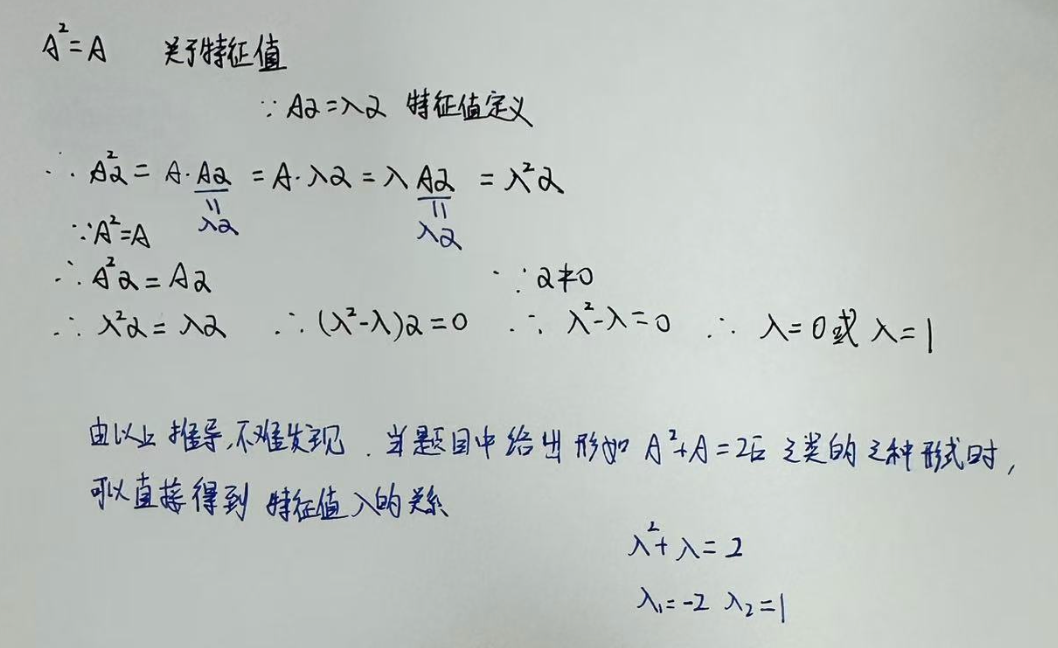 A²=A 关于特征值
∵ Aα=λα 特征值定义
∴ A²α = A·Aα = A·λα = λAα = λ²α
λα λα
∵A²=A
∴ A²α = Aα ∵ α≠0
∴ λ²α = λα ∴ (λ²-λ)α=0 ∴ λ²-λ=0 ∴ λ=0或λ=1
由以上推导,不难发现.当题目中给出形如 A²+A=2E 之类的这种形式时,
可以直接得到 特征值λ的关系
λ²+λ=2
λ₁=-2 λ₂=1